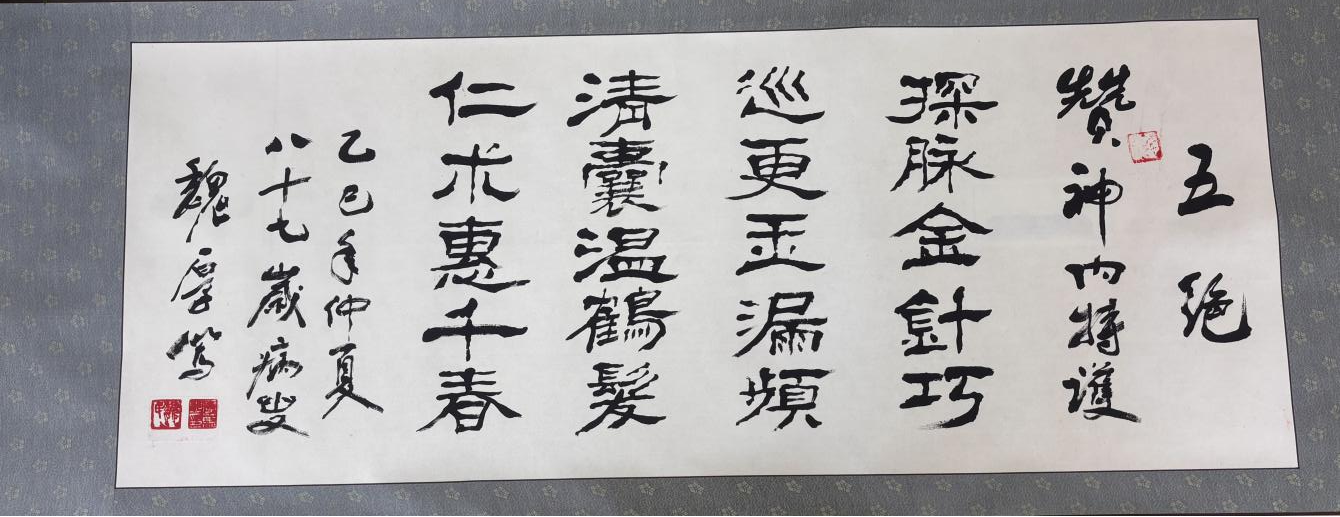 五絕
贊神內特護
探脉金針巧
巡更玉漏頻
清囊温鶴髮
仁术惠千春
乙巳年仲夏
八十七歲病叟
魏厚篤